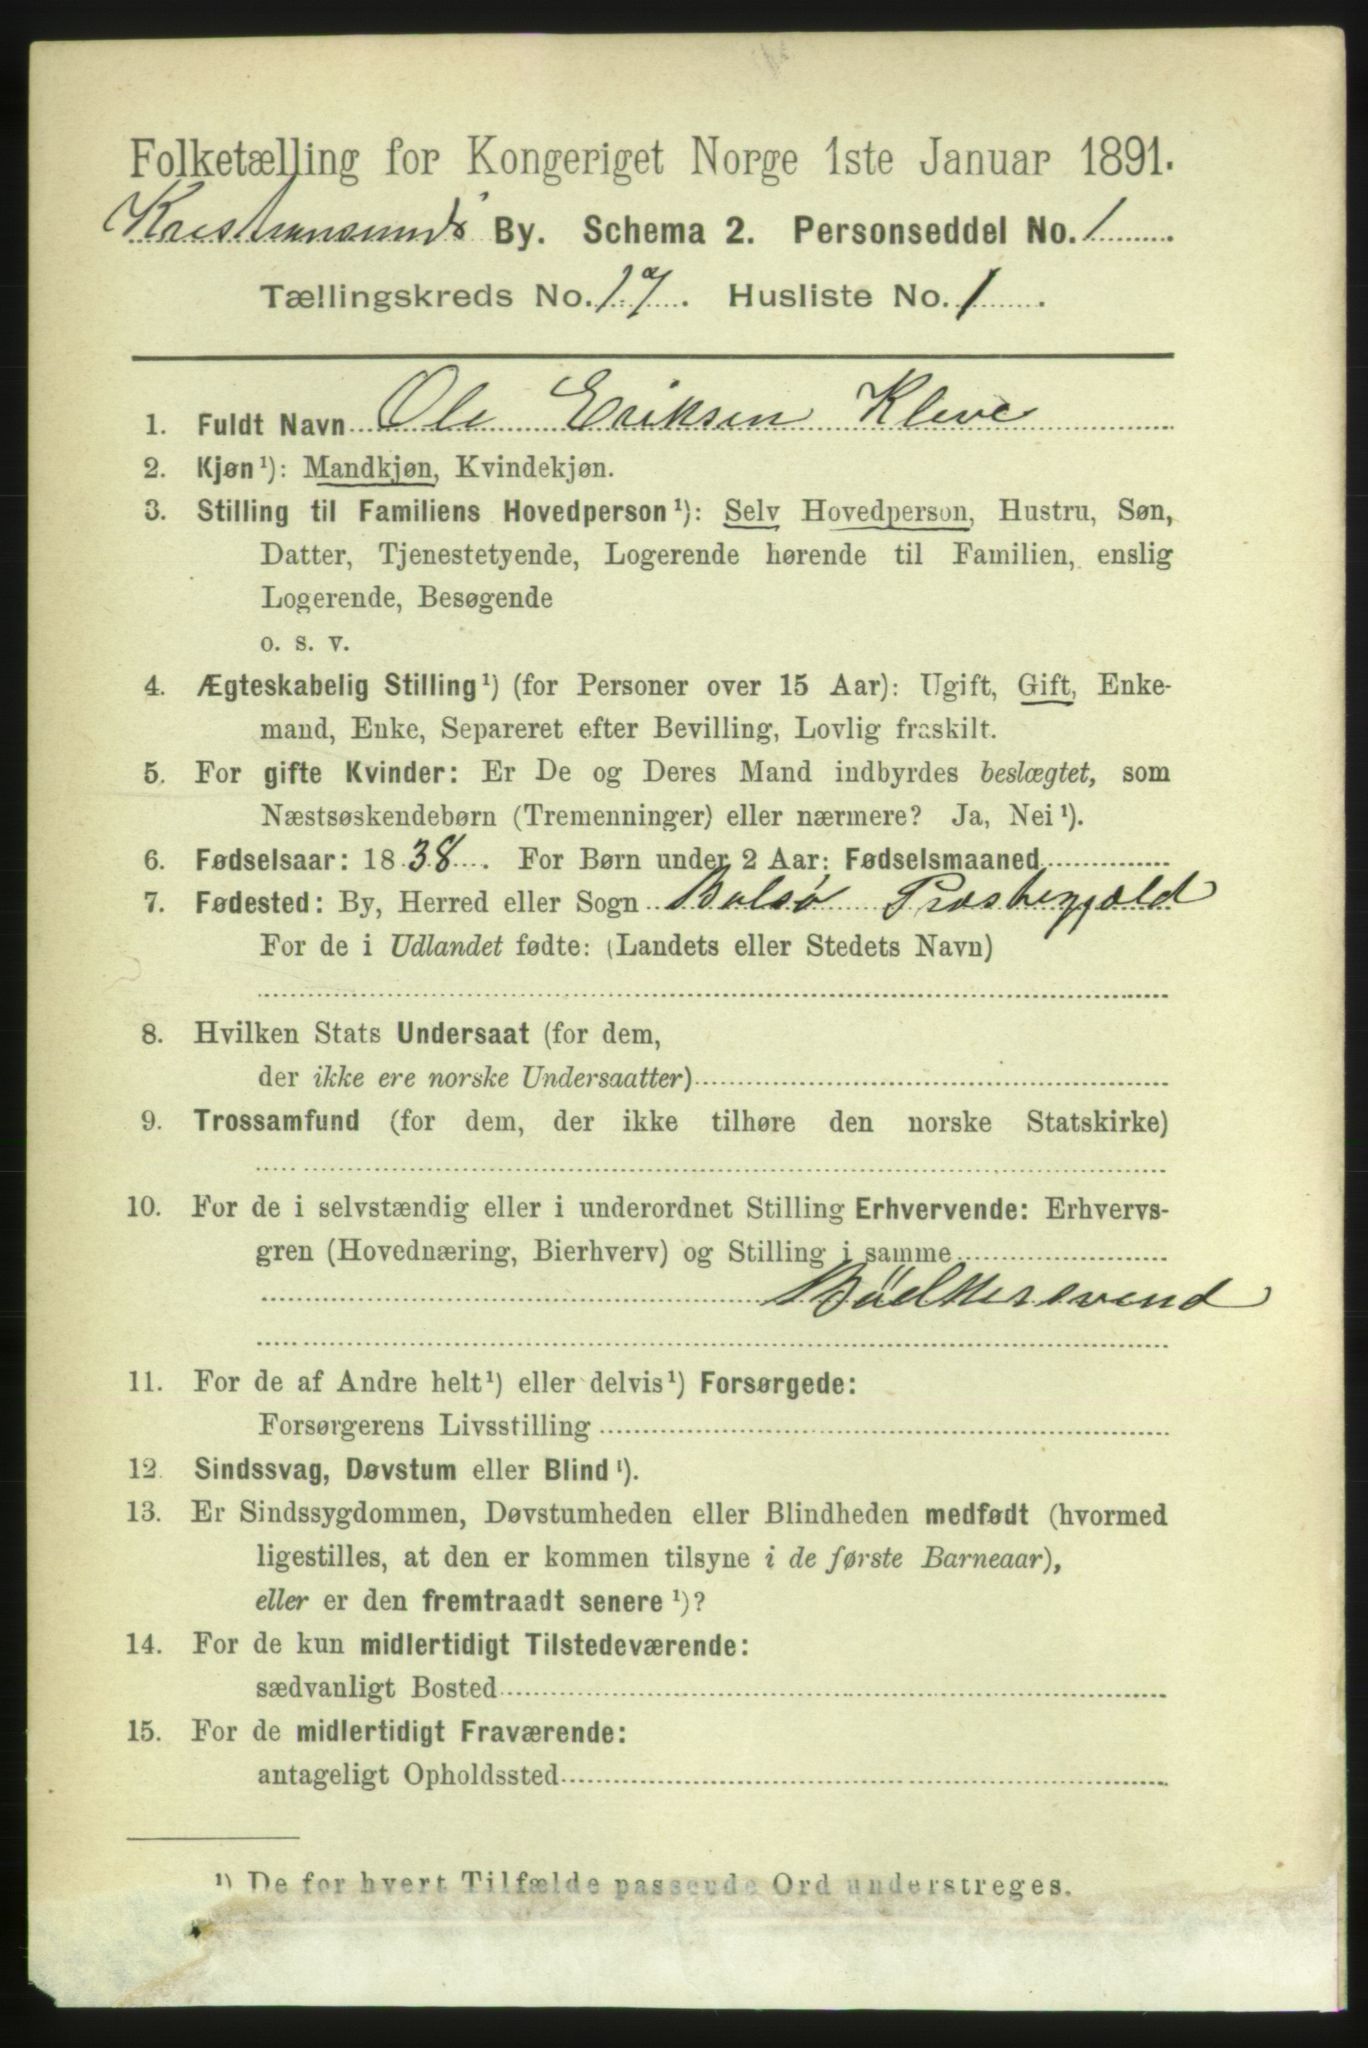 Folketælling for Kongeriget Norge 1ste Januar 1891.
Kristiansunds By. Schema 2. Personseddel No. 1
Tællingskreds No. 17. Husliste No. 1.
1. Fuldt Navn Ole Eriksen Kleve
2. Kjøn¹): Mandkjøn, Kvindekjøn.
3. Stilling til Familiens Hovedperson¹): Selv Hovedperson, Hustru, Søn,
Datter, Tjenestetyende, Logerende hørende til Familien, enslig
Logerende, Besøgende
o. s. v.
4. Ægteskabelig Stilling¹) (for Personer over 15 Aar): Ugift, Gift, Enke-
mand, Enke, Separeret efter Bevilling, Lovlig fraskilt.
5. For gifte Kvinder: Er De og Deres Mand indbyrdes beslægtet, som
Næstsøskendebørn (Tremenninger) eller nærmere? Ja, Nei¹).
6. Fødselsaar: 1838. For Børn under 2 Aar: Fødselsmaaned
7. Fødested: By, Herred eller Sogn Bolsø Præstegjæld
For de i Udlandet fødte: (Landets eller Stedets Navn)
8. Hvilken Stats Undersaat (for dem,
der ikke ere norske Undersaatter)
9. Trossamfund (for dem, der ikke tilhøre den norske Statskirke)
10. For de i selvstændig eller i underordnet Stilling Erhvervende: Erhvervs-
gren (Hovednæring, Bierhverv) og Stilling i samme
Bødkersvend
11. For de af Andre helt¹) eller delvis¹) Forsørgede:
Forsørgerens Livsstilling
12. Sindssvag, Døvstum eller Blind¹).
13. Er Sindssygdommen, Døvstumheden eller Blindheden medfødt (hvormed
ligestilles, at den er kommen tilsyne i de første Barneaar),
eller er den fremtraadt senere¹)?
14. For de kun midlertidigt Tilstedeværende:
sædvanligt Bosted
15. For de midlertidigt Fraværende:
antageligt Opholdssted
¹) De for hvert Tilfælde passende Ord understreges.